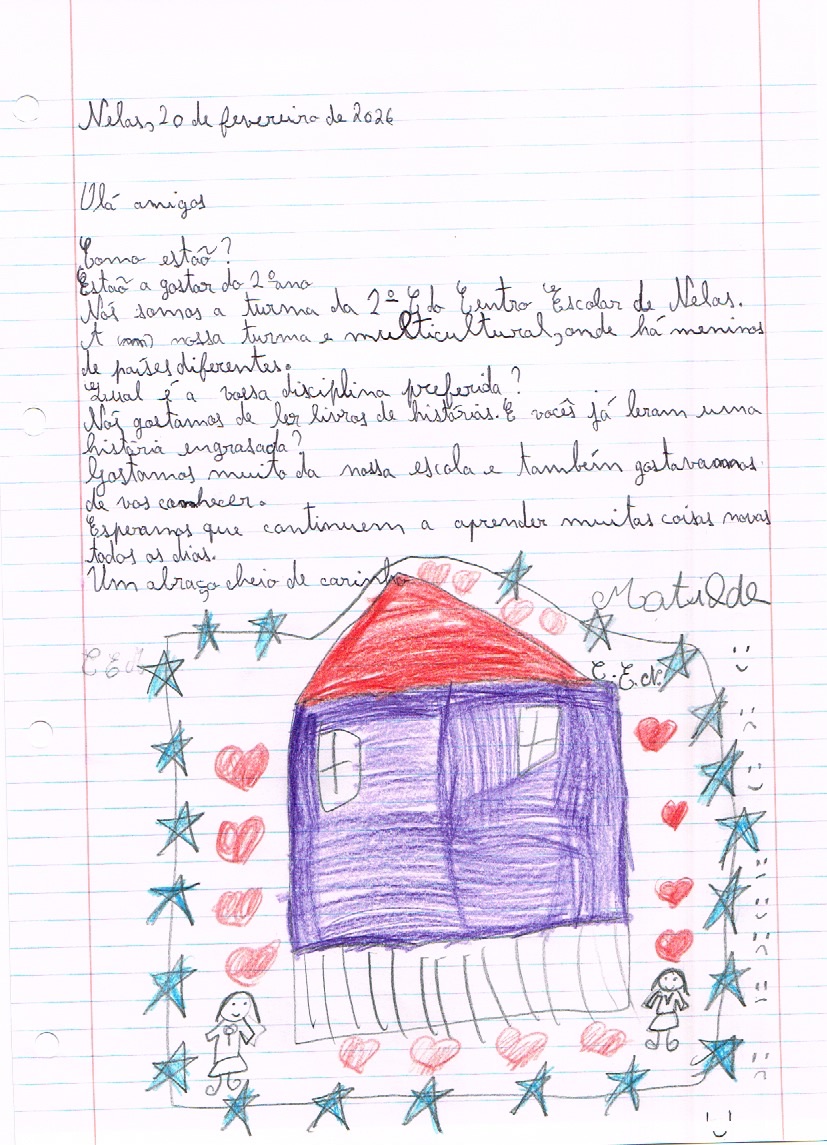 Nelas, 20 de fevereiro de 2026
Olá amigos
Como estão?
Estão a gostar do 2º ano
Nós somos a turma da 2º E do Centro Escolar de Nelas.
A nossa turma e multicultural, onde há meninos
de países diferentes.
Qual é a vossa disciplina preferida?
Nós gostamos de ler livros de histórias. E vocês já leram uma
história engrasada?
Gostamos muito da nossa escola e também gostavamos
de vos conhecer.
Esperamos que continuem a aprender muitas coisas novas
todos os dias.
Um abraço cheio de carinho
Matilde
C. E. N.